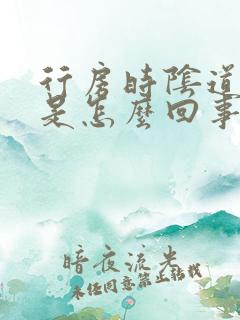 行房時陰道
是怎麼回事
暗夜流光
未经同意禁止转载